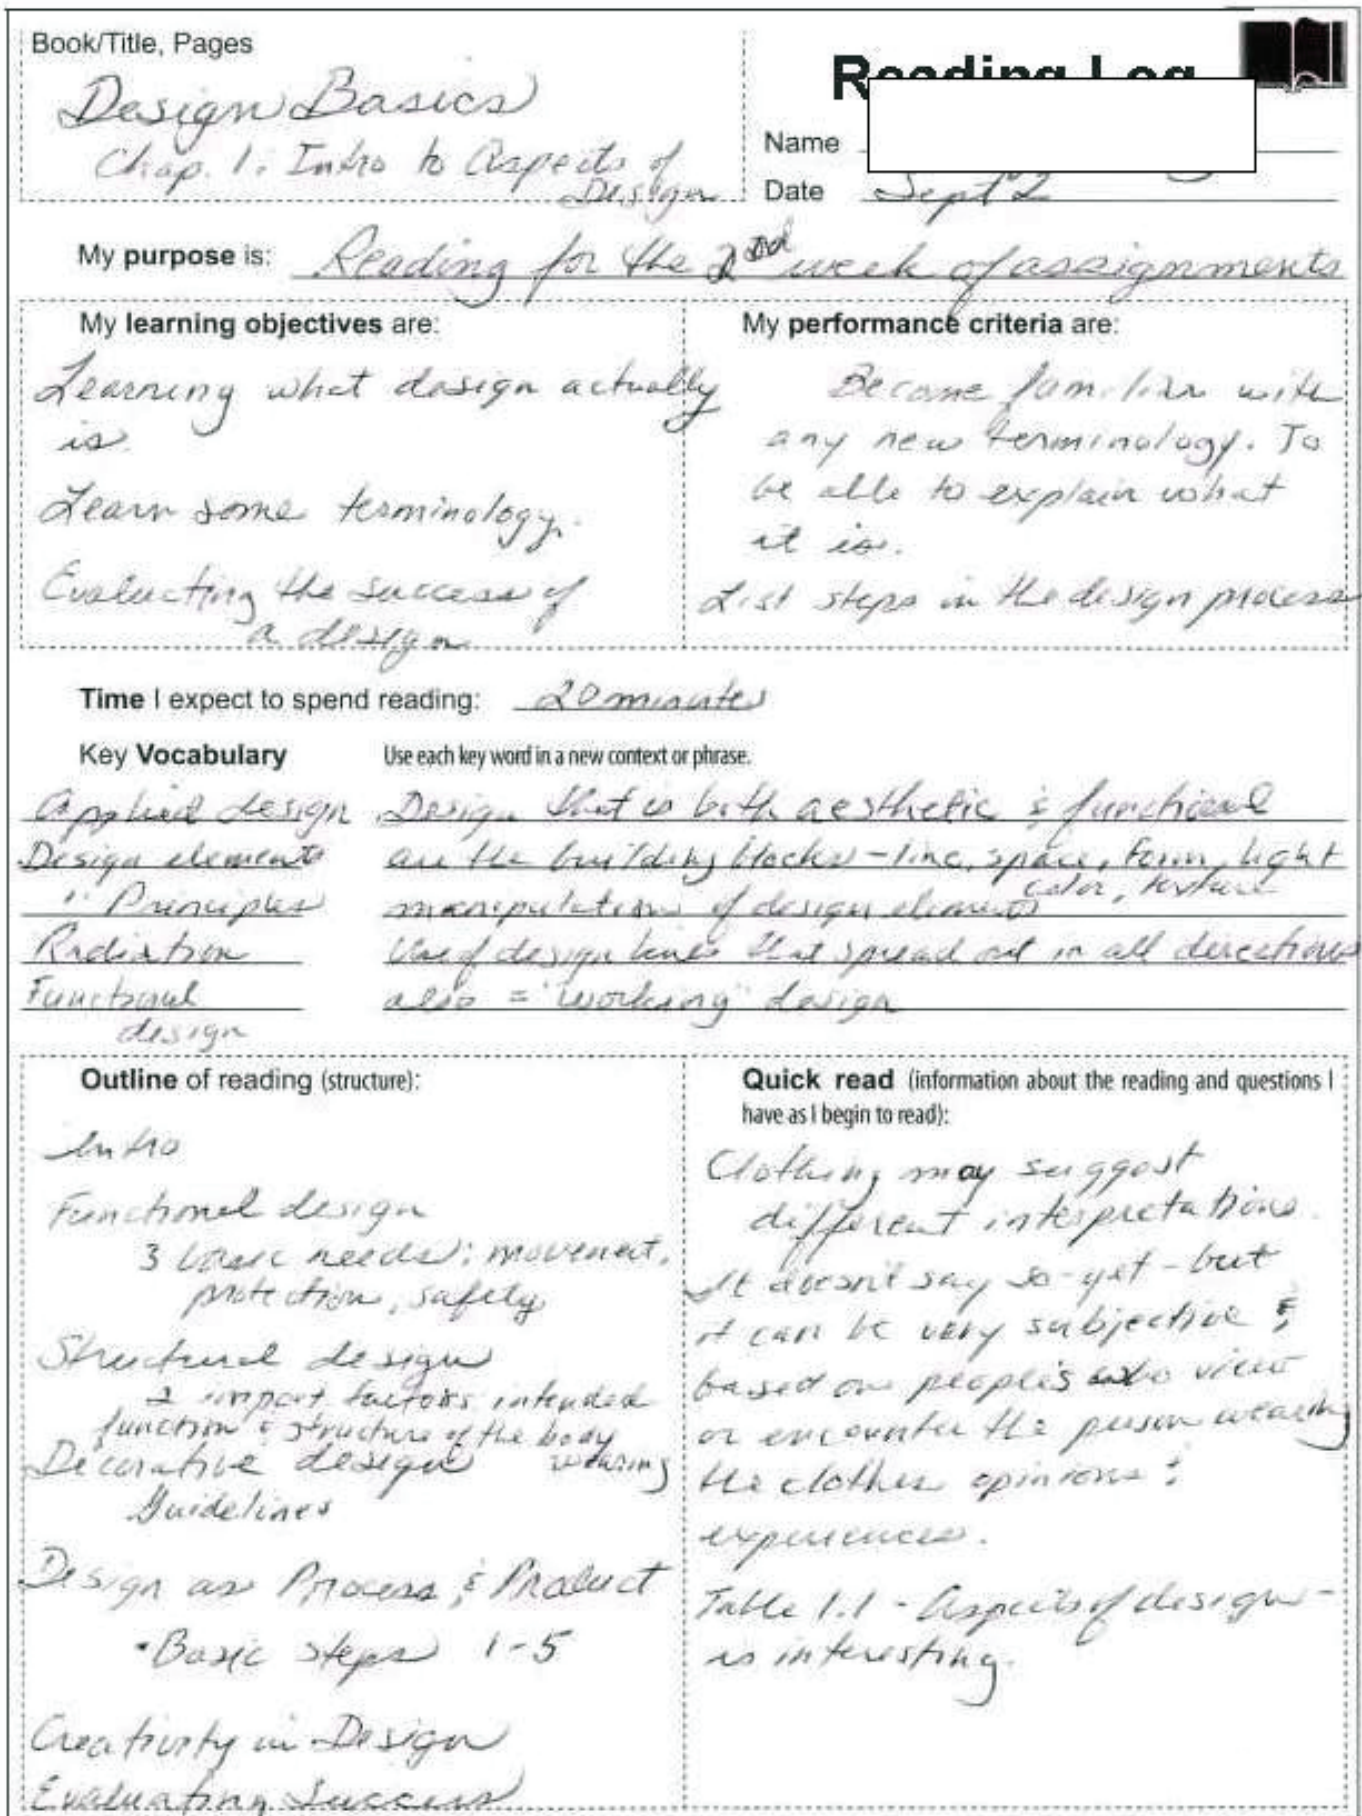 Book/Title, Pages
Design Basics
Chap. 1: Intro to Aspects of
Design
Reading Log
Name
Date Sept 2
My purpose is: Reading for the 2nd week of assignments
My learning objectives are:
Learning what design actually
is.
Learn some terminology.
Evaluating the success of
a design
My performance criteria are:
Become familiar with
any new terminology. To
be able to explain what
it is.
List steps in the design process
Time I expect to spend reading: 20 minutes
Key Vocabulary Use each key word in a new context or phrase.
Applied design Design that is both aesthetic & functional
Design elements are the building blocks - line, space, form, light
color, texture
" Principles manipulation of design elements
Radiation Use of design lines that spread out in all directions
Functional also = "working" design
design
Outline of reading (structure):
Intro
Functional design
3 basic needs: movement,
protection, safety
Structural design
2 import factors intended
function & structure of the body
wearing
Decorative design
Guidelines
Design as Process & Product
• Basic steps 1-5
Creativity in Design
Evaluating Success
Quick read (information about the reading and questions I
have as I begin to read):
Clothing may suggest
different interpretations.
It doesn't say so - yet - but
it can be very subjective &
based on people's who view
or encounter the person wearing
the clothes opinions &
experiences.
Table 1.1 - Aspects of design -
is interesting.